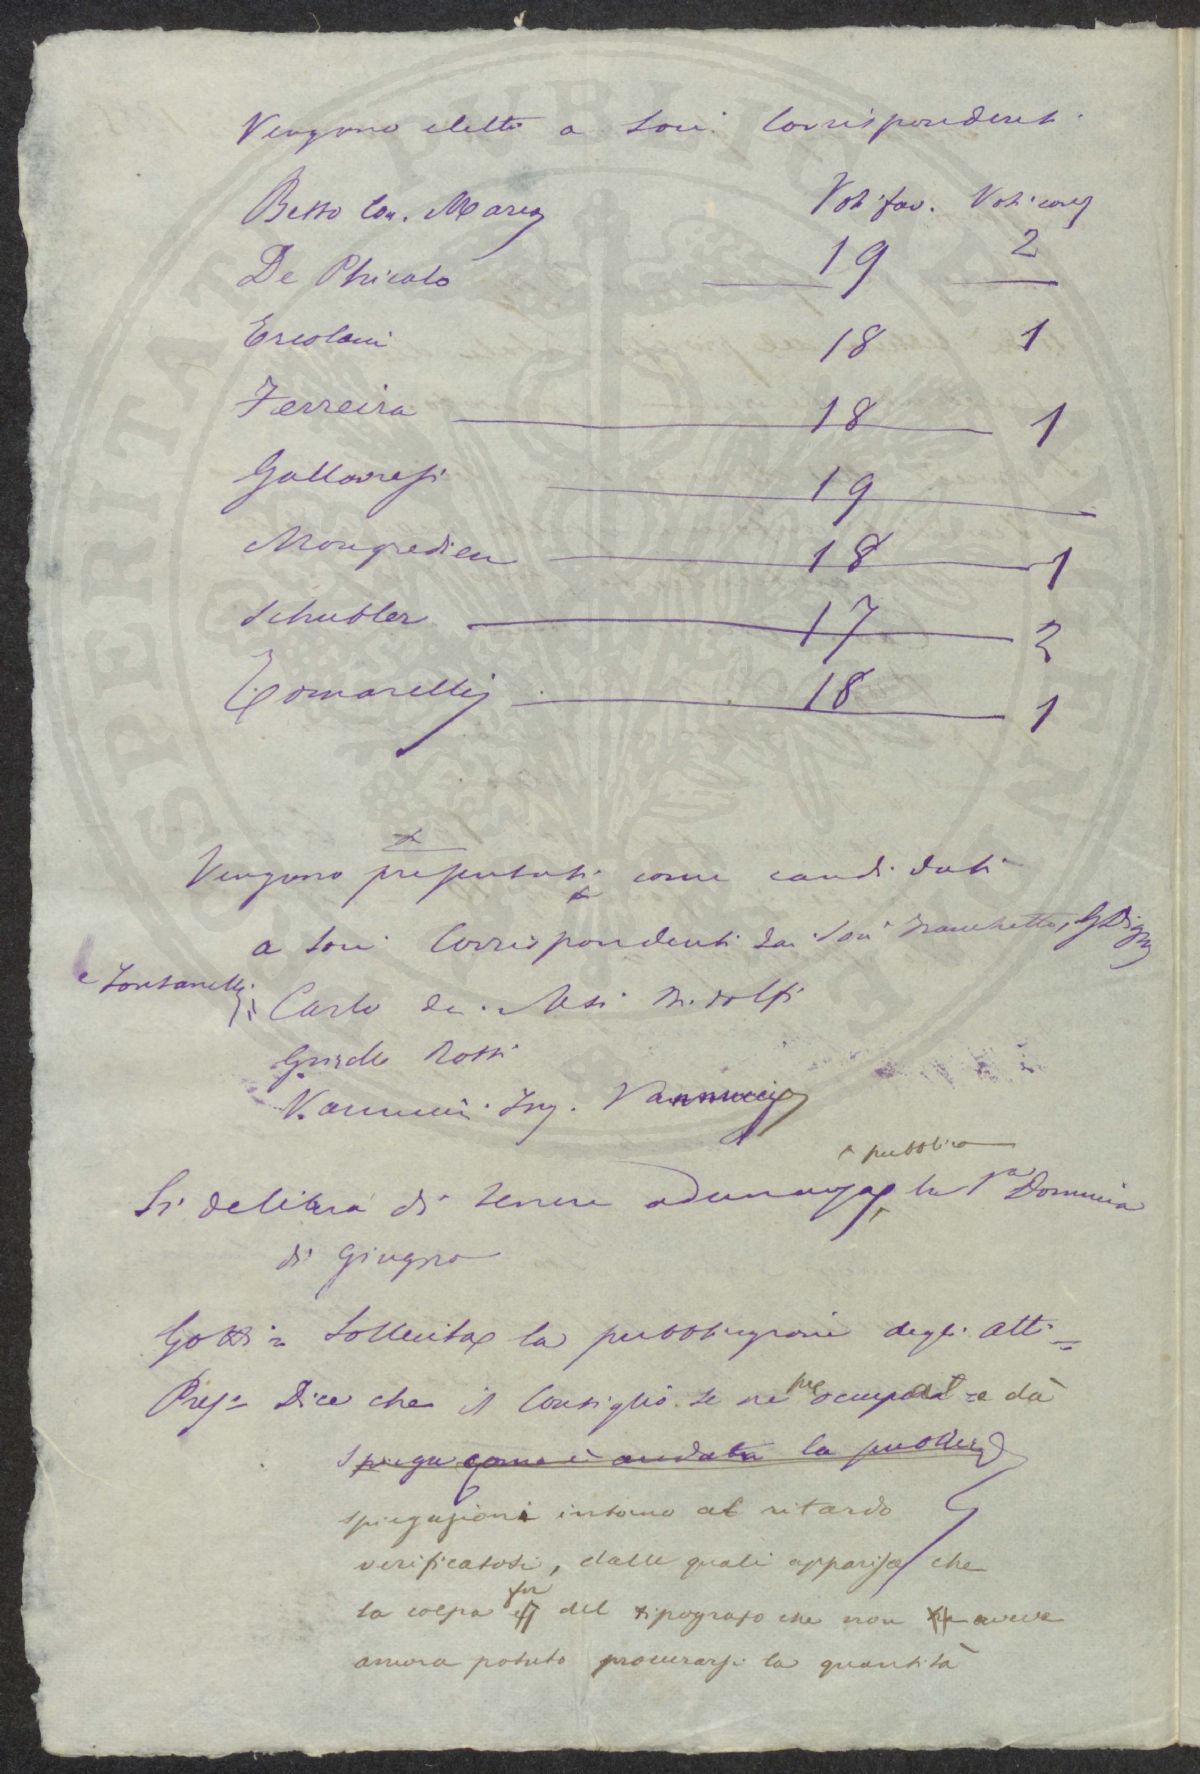 Vengono eletti a Soci Corrispondenti
Voti fav. Voti cont
Betto Con. Marco
De Phicalo 19 2
Ercolani 18 1
Ferreira 18 1
Gallavresi 19
Mongredien 18 1
Schubler 17 2
Tomarelli 18 1
Vengono presentati come candidati
a Soci Corrispondenti dai Soci Franchetti,
e Fontanelli
Carlo de Ridolfi
Guido Rossi
Vannucci Ing. Vannucci
pubblica
Si delibera di tenere adunanza la 1a Domenica
di Giugno
Gotti = Sollecita la pubblicazione degli atti =
Pres = Dice che il Consiglio se ne pre occupato e dà
spiega come è andata la pubblicaz
spiegazioni intorno al ritardo
verificatosi, dalle quali apparisce che
la colpa fu del tipografo che non aveva
ancora potuto procurarsi la quantità